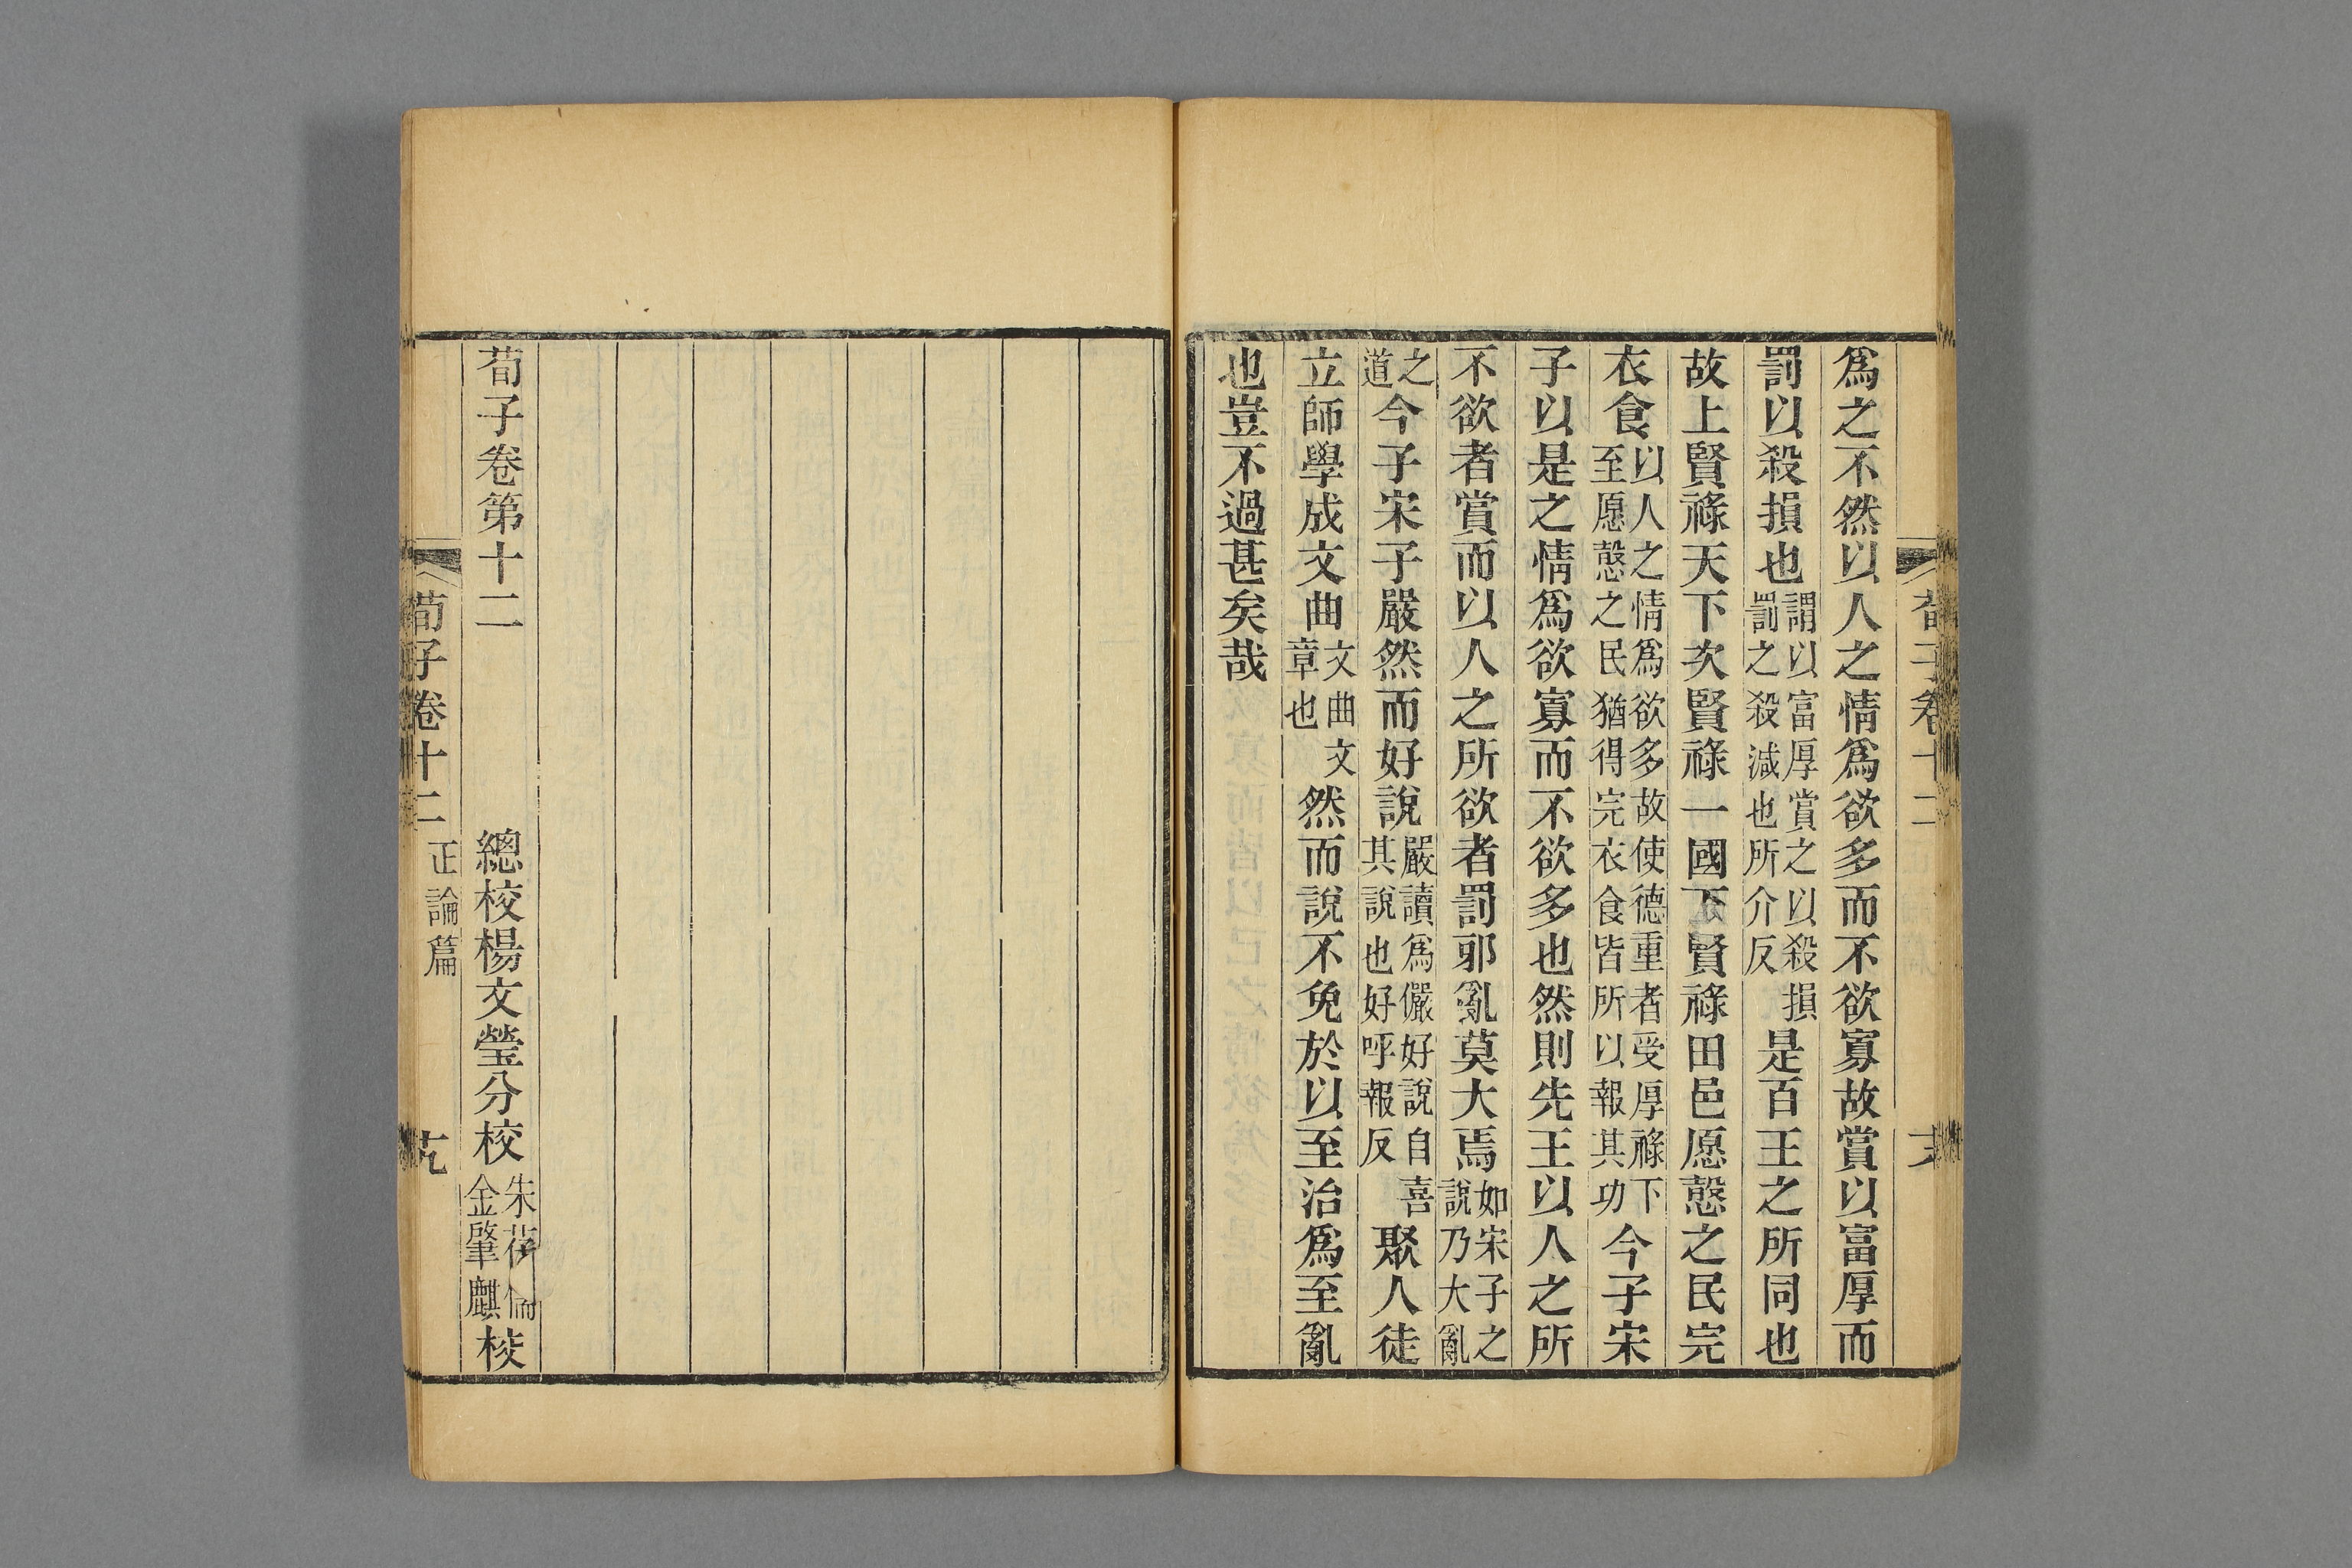 爲之不然以人之情爲欲多而不欲寡故賞以富厚而
罰以殺損也謂以富厚賞之以殺損罰之殺減也所介反是百王之所同也
故上賢祿天下次賢祿一國下賢祿田邑愿慤之民完
衣食以人之情爲欲多故使德重者受厚祿下至愿慤之民猶得完衣食皆所以報其功今子宋
子以是之情爲欲寡而不欲多也然則先王以人之所
不欲者賞而以人之所欲者罰邪亂莫大焉如宋子之說乃大亂
之道今子宋子嚴然而好說嚴讀爲儼好說自喜其說也好呼報反聚人徒
立師學成文曲文曲文章也然而說不免於以至治爲至亂
也豈不過甚矣哉
荀子卷第十二 總校楊文瑩分校朱金肇麒校
荀子卷十二 正論篇